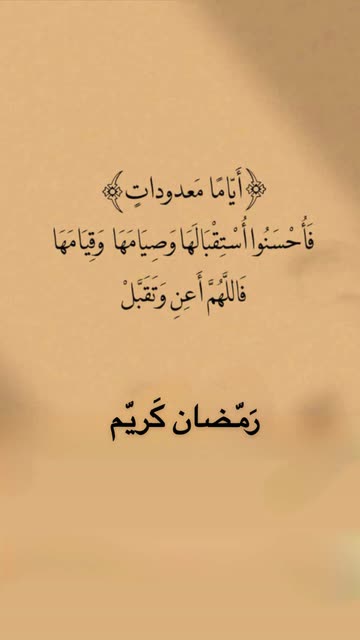 ﴿أَيَّامًا مَعدودَاتٍ﴾
فَأُحْسَنُوا أُسْتِقْبَالَهَا وَصِيَامَهَا وَقِيَامَهَا
فَاللَّهُمَّ أَعِنِ وَتَقَبَّلْ
رَمّضان كَريّم